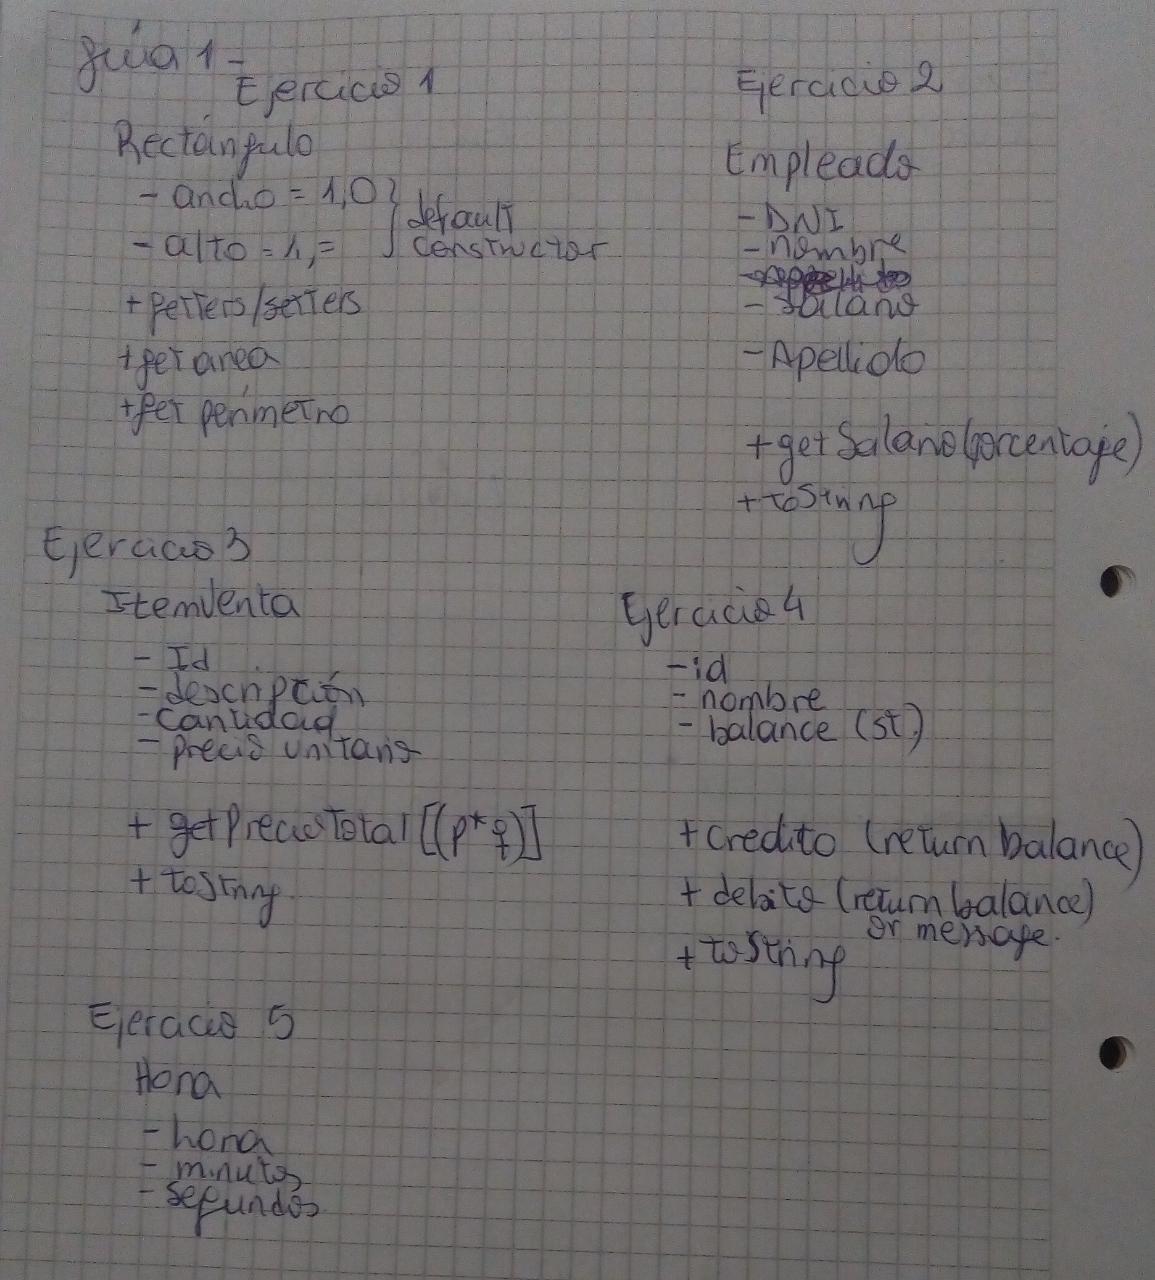 Guía 1-
Ejercicio 1
Rectángulo
- ancho = 1,0 } default
- alto = 1,= constructor
+ getters/setters
+ get area
+ get perímetro
Ejercicio 2
Empleado
- DNI
- nombre
- Salario
- Apellido
+ getSalario(porcentaje)
+ toString
Ejercicio 3
ItemVenta
- Id
- descripción
- cantidad
- precio unitario
+ getPrecioTotal [(p*q)]
+ toString
Ejercicio 4
- id
- nombre
- balance (st.)
+ credito (return balance)
+ debito (return balance)
or message.
+ toString
Ejercicio 5
Hora
- hora
- minutos
- segundos